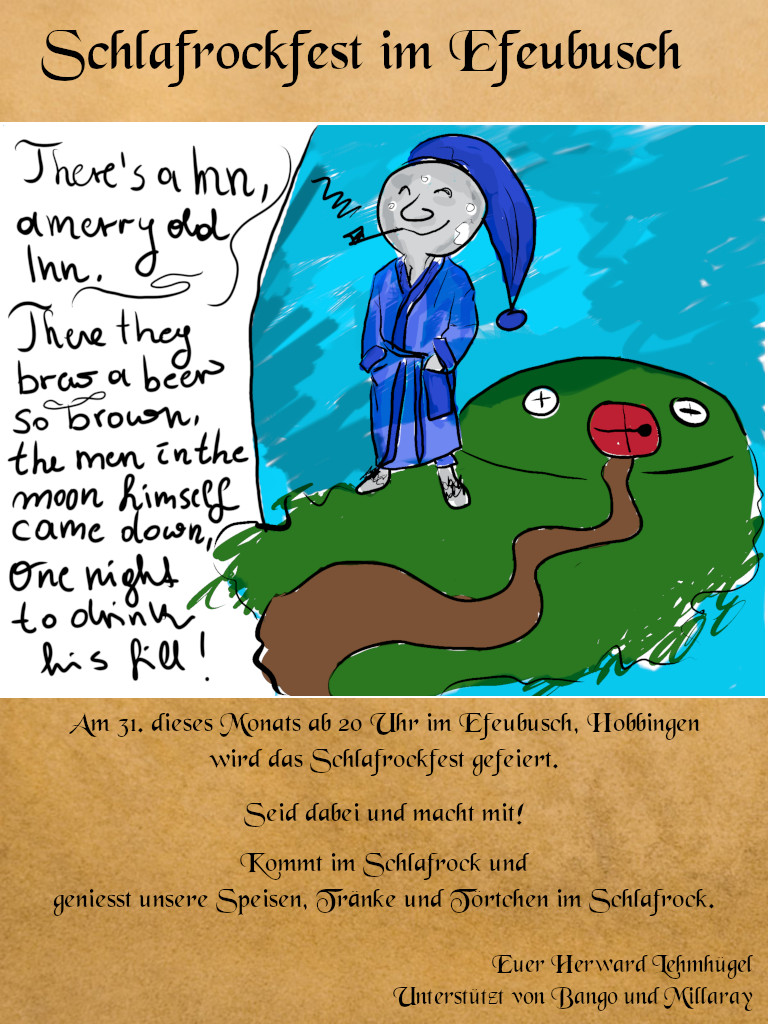 Schlafrockfest im Efeubusch
There's a Inn,
a merry old
Inn.
There they
brew a beer
so brown,
the men in the
moon himself
came down,
One night
to drink
his fill!
Am 31. dieses Monats ab 20 Uhr im Efeubusch, Hobbingen
wird das Schlafrockfest gefeiert.
Seid dabei und macht mit!
Kommt im Schlafrock und
geniesst unsere Speisen, Tränke und Törtchen im Schlafrock.
Euer Herward Lehmhügel
Unterstützt von Bango und Millaray